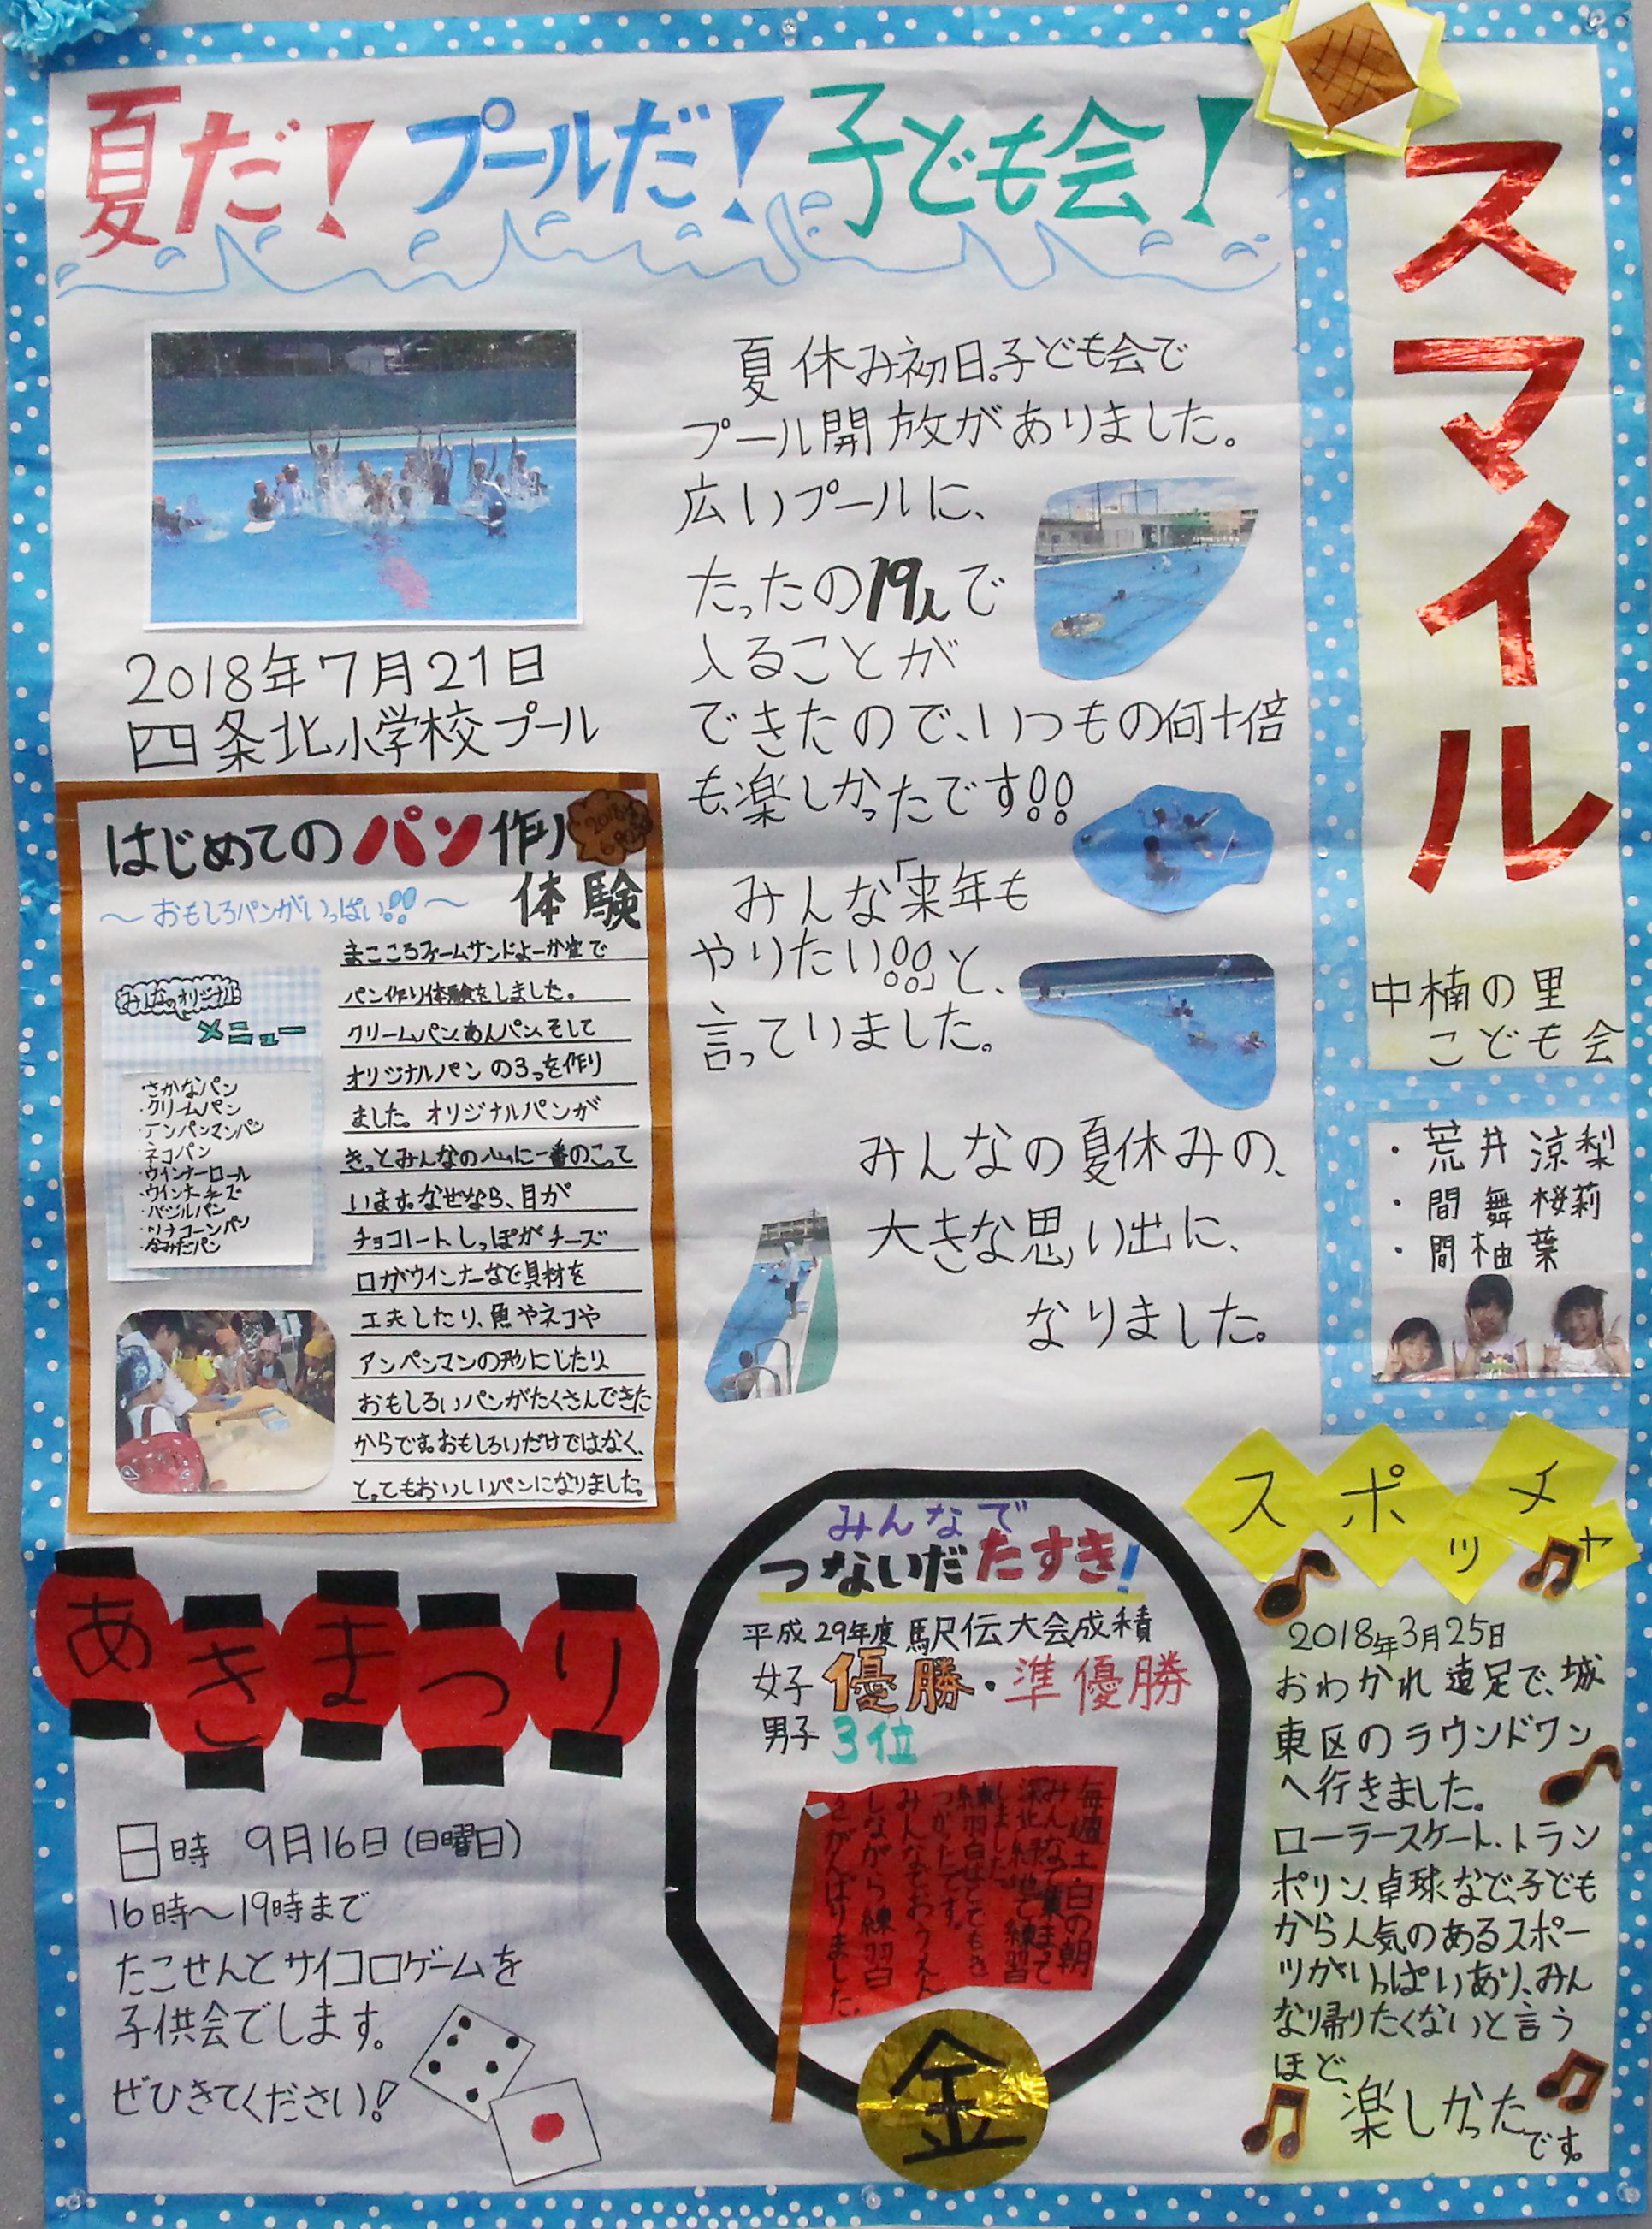 スマイル
中楠の里
こども会
・荒井 涼梨
・間 舞桜莉
・間 柚葉
夏だ!プールだ!子ども会!
夏休み初日。子ども会で
プール開放がありました。
広いプールに、
たったの19人で
入ることが
できたので、いつもの何十倍
も、楽しかったです!!
みんな「来年も
やりたい!!」と、
言っていました。
みんなの夏休みの、
大きな思い出に、
なりました。
2018年7月21日
四条北小学校プール
はじめてのパン作り
体験
～おもしろパンがいっぱい!!～
みんなのオリジナル
メニュー
・さかなパン
・クリームパン
・アンパンマンパン
・ネコパン
・ウインナーロール
・ウインナーチーズ
・バジルパン
・ツナコーンパン
・なみだパン
まごころファームサンドよーか堂で
パン作り体験をしました。
クリームパン、あんパン、そして
オリジナルパンの3つを作り
ました。オリジナルパンが
きっとみんなの心に一番のこって
います。なぜなら、目が
チョコレート、しっぽがチーズ
口がウインナーなど具材を
工夫したり、魚やネコや
アンペンマンの形にしたり
おもしろいパンがたくさんできた
からです。おもしろいだけではなく、
とってもおいしいパンになりました。
あきまつり
日時 9月16日(日曜日)
16時～19時まで
たこせんとサイコロゲームを
子供会でします。
ぜひきてください!
みんなで
つないだたすき!
平成29年度駅伝大会成績
女子 優勝・準優勝
男子 3位
毎週土・日の朝
みんなで集まって
深北緑地で練習
しました。
練習はとてもき
つかったです。
みんなでおうえん
しながら練習
をがんばりました。
金
スポッチャ
2018年3月25日
おわかれ遠足で、城
東区のラウンドワン
へ行きました。
ローラースケート、トラン
ポリン、卓球など、子ども
から人気のあるスポー
ツがいっぱいあり、みん
な帰りたくないと言う
ほど、
楽しかった
です。